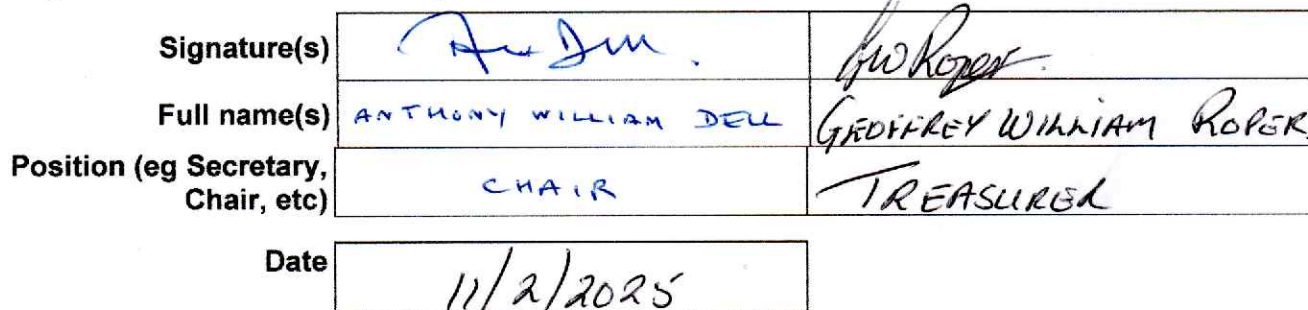 Signature(s) AW Dell. GW Roper.
Full name(s) ANTHONY WILLIAM DELL GEOFFREY WILLIAM ROPER
Position (eg Secretary,
Chair, etc) CHAIR TREASURER
Date 11/2/2025